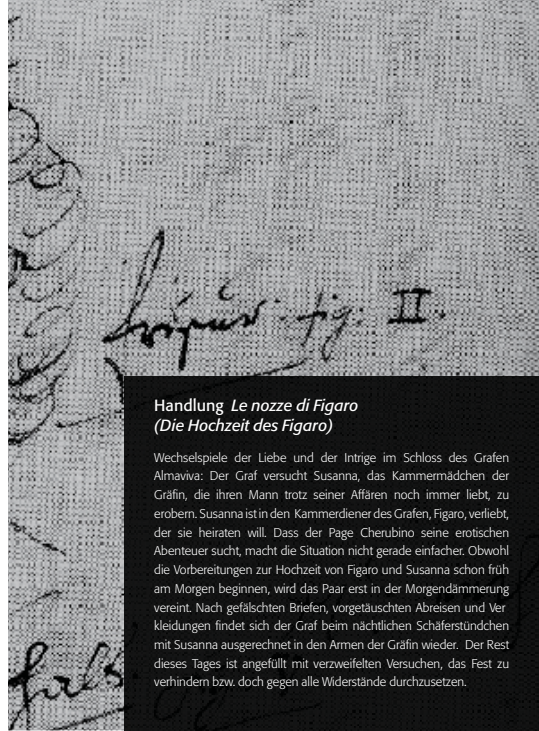 fig: II.
Handlung Le nozze di Figaro
(Die Hochzeit des Figaro)
Wechselspiele der Liebe und der Intrige im Schloss des Grafen
Almaviva: Der Graf versucht Susanna, das Kammermädchen der
Gräfin, die ihren Mann trotz seiner Affären noch immer liebt, zu
erobern. Susanna ist in den Kammerdiener des Grafen, Figaro, verliebt,
der sie heiraten will. Dass der Page Cherubino seine erotischen
Abenteuer sucht, macht die Situation nicht gerade einfacher. Obwohl
die Vorbereitungen zur Hochzeit von Figaro und Susanna schon früh
am Morgen beginnen, wird das Paar erst in der Morgendämmerung
vereint. Nach gefälschten Briefen, vorgetäuschten Abreisen und Ver
kleidungen findet sich der Graf beim nächtlichen Schäferstündchen
mit Susanna ausgerechnet in den Armen der Gräfin wieder. Der Rest
dieses Tages ist angefüllt mit verzweifelten Versuchen, das Fest zu
verhindern bzw. doch gegen alle Widerstände durchzusetzen.